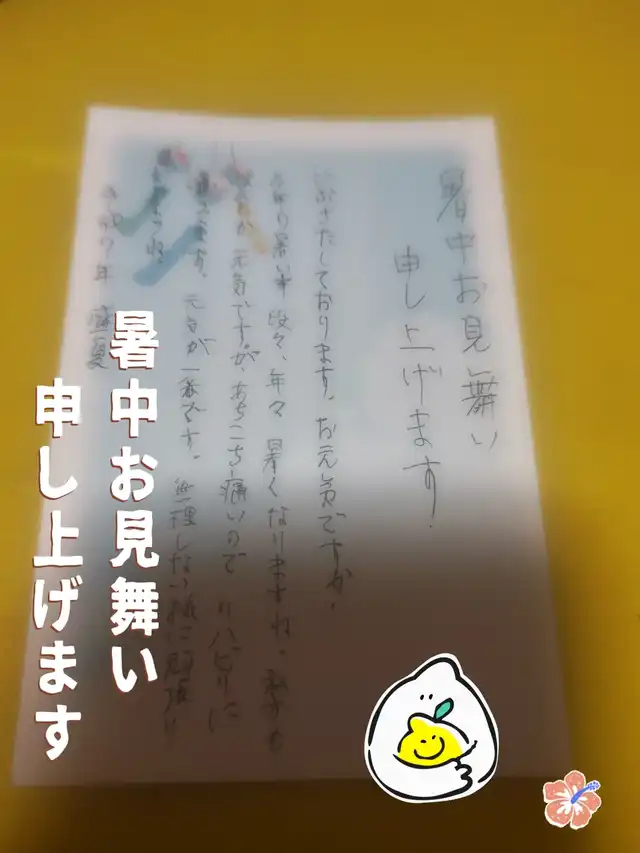 暑中お見舞い
申し上げます。
ごぶさたしております。お元気ですか。
暑い 段々、年々 暑くなりますね。私も
元気です。が、あちこち痛いので リハビリに
ます。元気が一番です。無理しない様に頑張り
ましょうね
令和7年 盛夏
暑中お見舞い
申し上げます